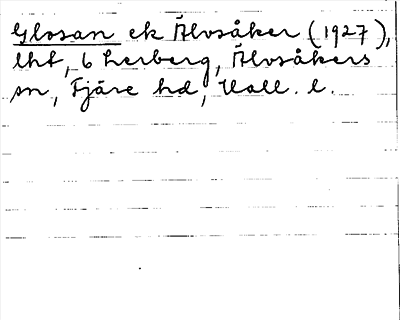 Glosan ek Älvsåker (1927),
lht, b herberg, Älvsåkers
sn, Fjäre hd, Hall. l.